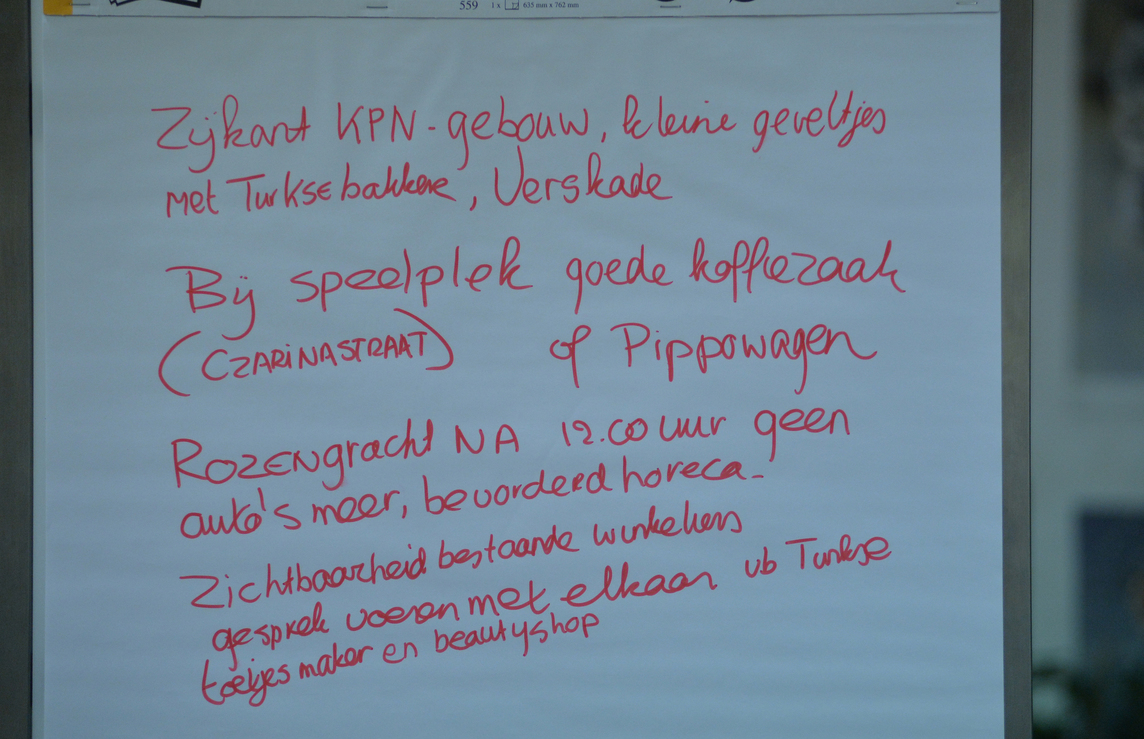 559 1 x 635 mm x 762 mm
Zijkant KPN-gebouw, kleine geveltjes
met Turkse bakkere, Verskade
Bij speelplek goede koffiezaak
(CZARINASTRAAT) of Pippowagen
ROZENgracht NA 12.00 uur geen
auto's meer, bevorderd horeca-
Zichtbaarheid bestaande winkeliers
gesprek voeren met elkaar vb Turkse
toetjes maker en beautyshop